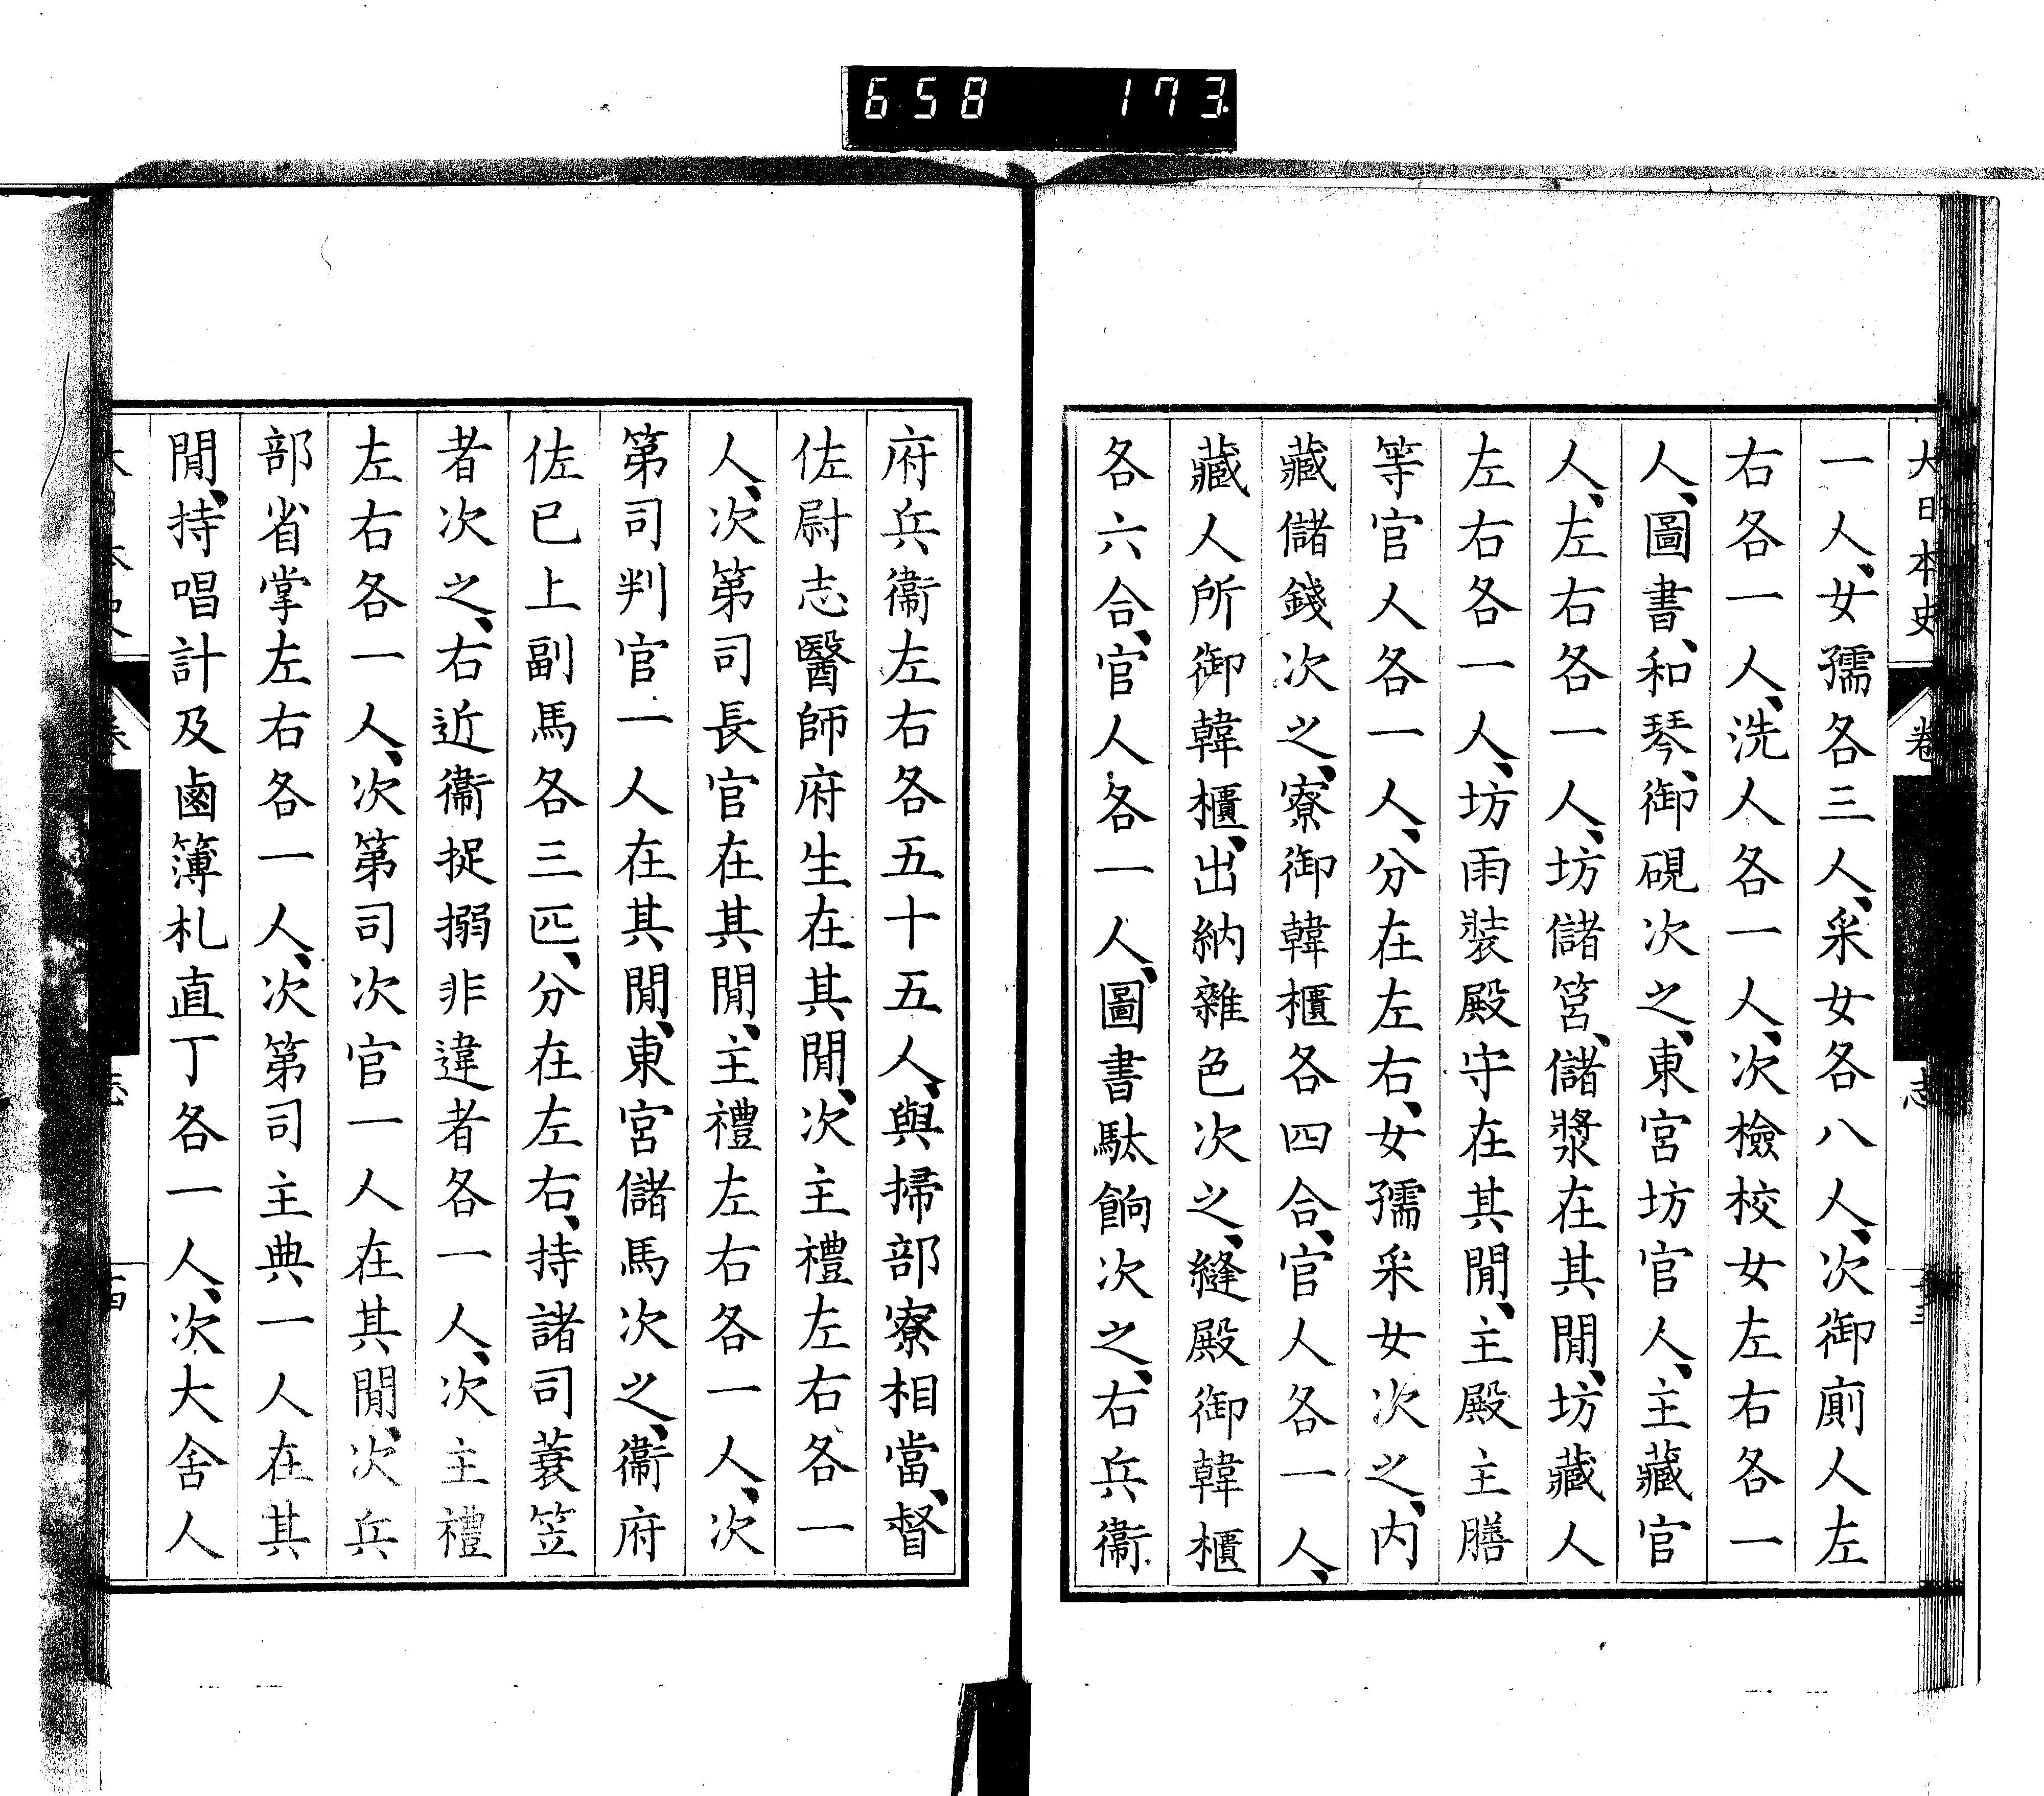 658 173
大日本史 卷 志
一人、女孺各三人、采女各八人、次御廁人左
右各一人、洗人各一人、次檢校女左右各一
人、圖書、和琴、御硯次之、東宮坊官人、主藏官
人、左右各一人、坊儲筥、儲漿在其閒、坊藏人
左右各一人、坊雨裝殿守在其閒、主殿主膳
等官人各一人、分在左右、女孺采女次之、内
藏儲錢次之、寮御韓櫃各四合、官人各一人、
藏人所御韓櫃、出納雜色次之、縫殿御韓櫃
各六合、官人各一人、圖書馱餉次之、右兵衞
府兵衞左右各五十五人、與掃部寮相當、督
佐尉志醫師府生在其閒、次主禮左右各一
人、次第司長官在其閒、主禮左右各一人、次
第司判官一人在其閒、東宮儲馬次之、衞府
佐已上副馬各三匹、分在左右、持諸司蓑笠
者次之、右近衞捉搦非違者各一人、次主禮
左右各一人、次第司次官一人在其閒、次兵
部省掌左右各一人、次第司主典一人在其
閒、持唱計及鹵簿札直丁各一人、次大舍人